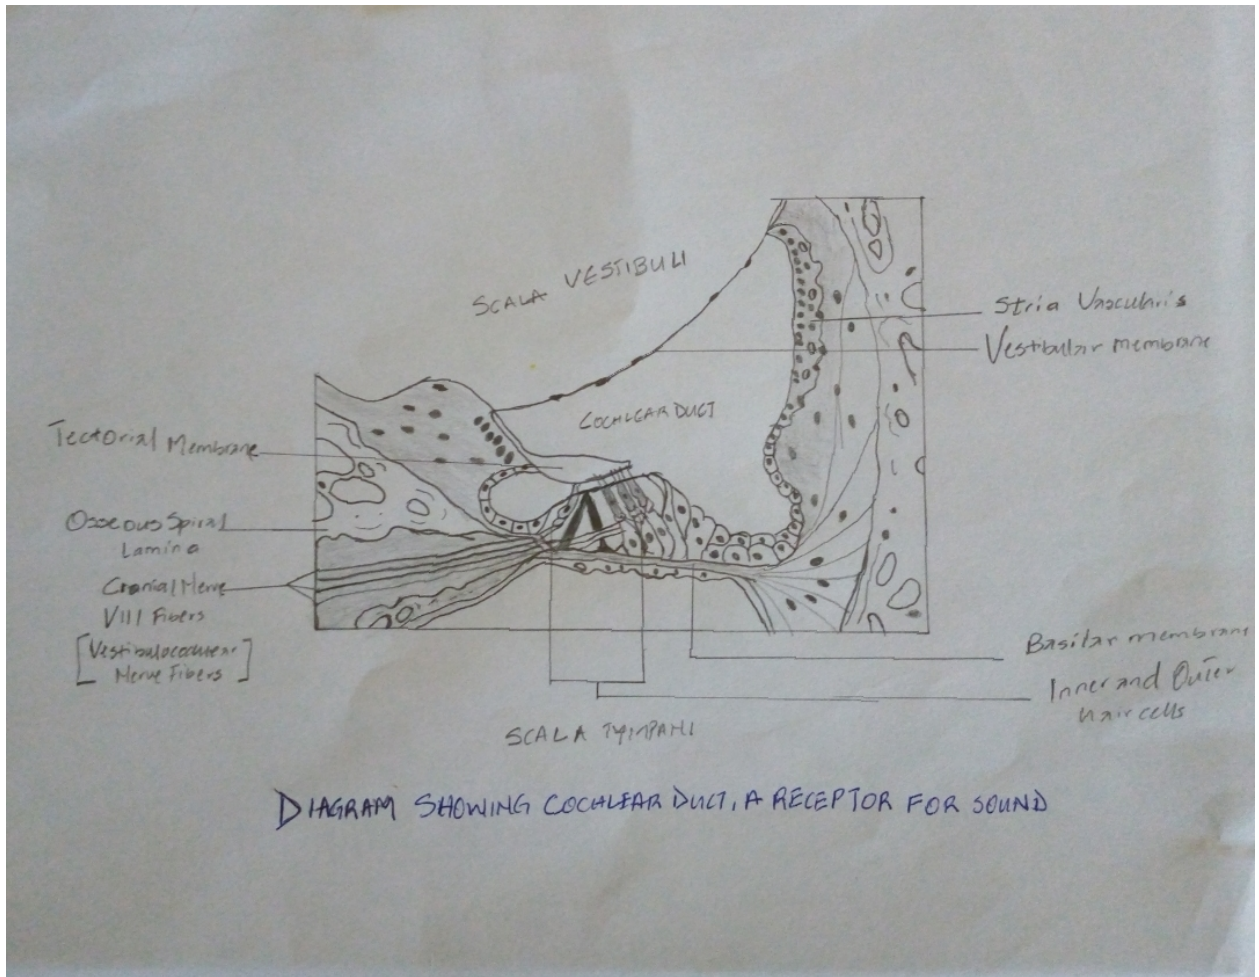 SCALA VESTIBULI
Stria Vascularis
Vestibular Membrane
COCHLEAR DUCT
Tectorial Membrane
Osseous Spiral
Lamina
Cranial Nerve
VIII Fibers
[Vestibulocochlear
Nerve Fibers]
Basilar membrane
Inner and Outer
hair cells
SCALA TYMPANI
DIAGRAM SHOWING COCHLEAR DUCT, A RECEPTOR FOR SOUND